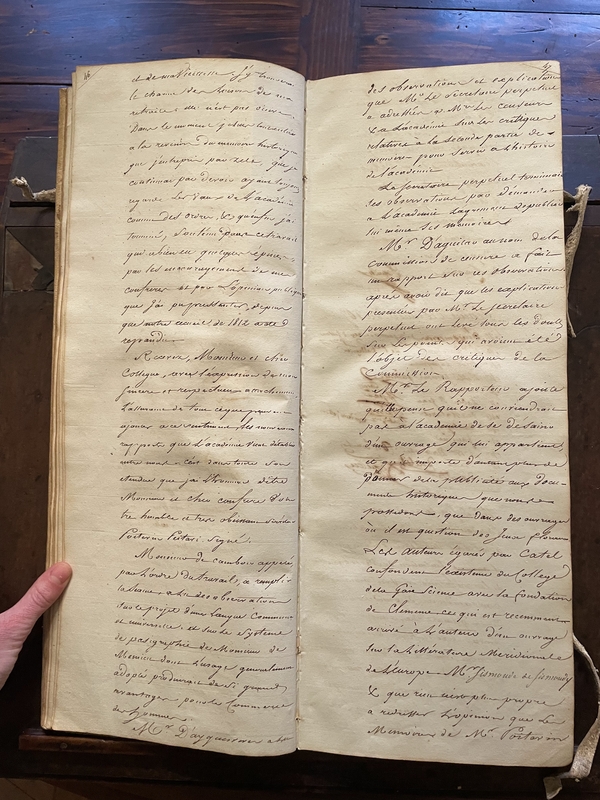 46
et de ma Vieillesse j'y trouverai
le charme des loisirs de ma
retraite
Dans le moment
à la revision du memoire historique
que j'entrepris par zele, que je
continuai par devoir ayant toujours
regardé les vœux de l'académie
comme des ordres, & qu'enfin j'ai
terminé, soutenu pour ce travail
par les encouragements de mes
confreres et par l'opinion publique
que j'ai pu pressentir, depuis
que notre recueil de 1812 a été
repandu.
Recevez, Messieurs et chers
Collegues, avec l'expression de mon
sincere et respectueux attachement
l'assurance de tout ce que peuvent
ajouter à ce sentiment les nouveaux
rapports que l'académie vient d'établir
entre nous. C'est dans toute son
etendue que j'ai l'honneur d'être
Messieurs et chers confreres Votre
tres humble et tres obeissant serviteur
Poitevin Peitavi Signé.
Monsieur de Cambon appelé
par l'ordre du travail, a rempli
sa et lu des observations
sur le projet d'une langue commune
et universelle, et sur le systeme
de pasigraphie de Monsieur de
Memieu dont l'usage generalement
adopté produirait de si grands
avantages pour le Commerce
des hommes.
Mr. D'ayguesvives a lu
47
des observations et explications
que Mr. Le Secretaire perpetuel
a adressées à Mrs. les censeurs
& a l'academie sur les critiques
relatives a la seconde partie des
memoires pour servir a l'histoire
de l'academie.
Le Secretaire perpetuel terminait
ses observations par demander
a l'academie l'agrement de publier
lui même ses memoires.
Mr. D'aguilar au nom de la
commission de censure a fait
un rapport sur ces observations
après avoir dit que les explications
presentées par Mr. Le Secretaire
perpetuel ont levé tous les doutes
sur les points qui avoient été
l'objet des critiques de la
Commission.
Mr. Le Rapporteur ajoute
qu'il pense que ce ne conviendrait
pas à l'academie de se desaisir
d'un ouvrage qui lui appartient
et qu'il importe d'autant plus de
donner de la publicité aux docu-
ments historiques que nous
possedons, que dans des ouvrages
où il est question des Jeux floraux
Les auteurs egarés par Catel
confondent l'existence du College
de la Gaie Science avec la fondation
de Clemence ce qui est recemment
arrivé à l'auteur d'un ouvrage
sur la Litterature Meridionale
de l'Europe Mr. Sismonde de Sismondy
& que rien n'est plus propre
a redresser l'opinion que les
Memoires de Mr. Poitevin